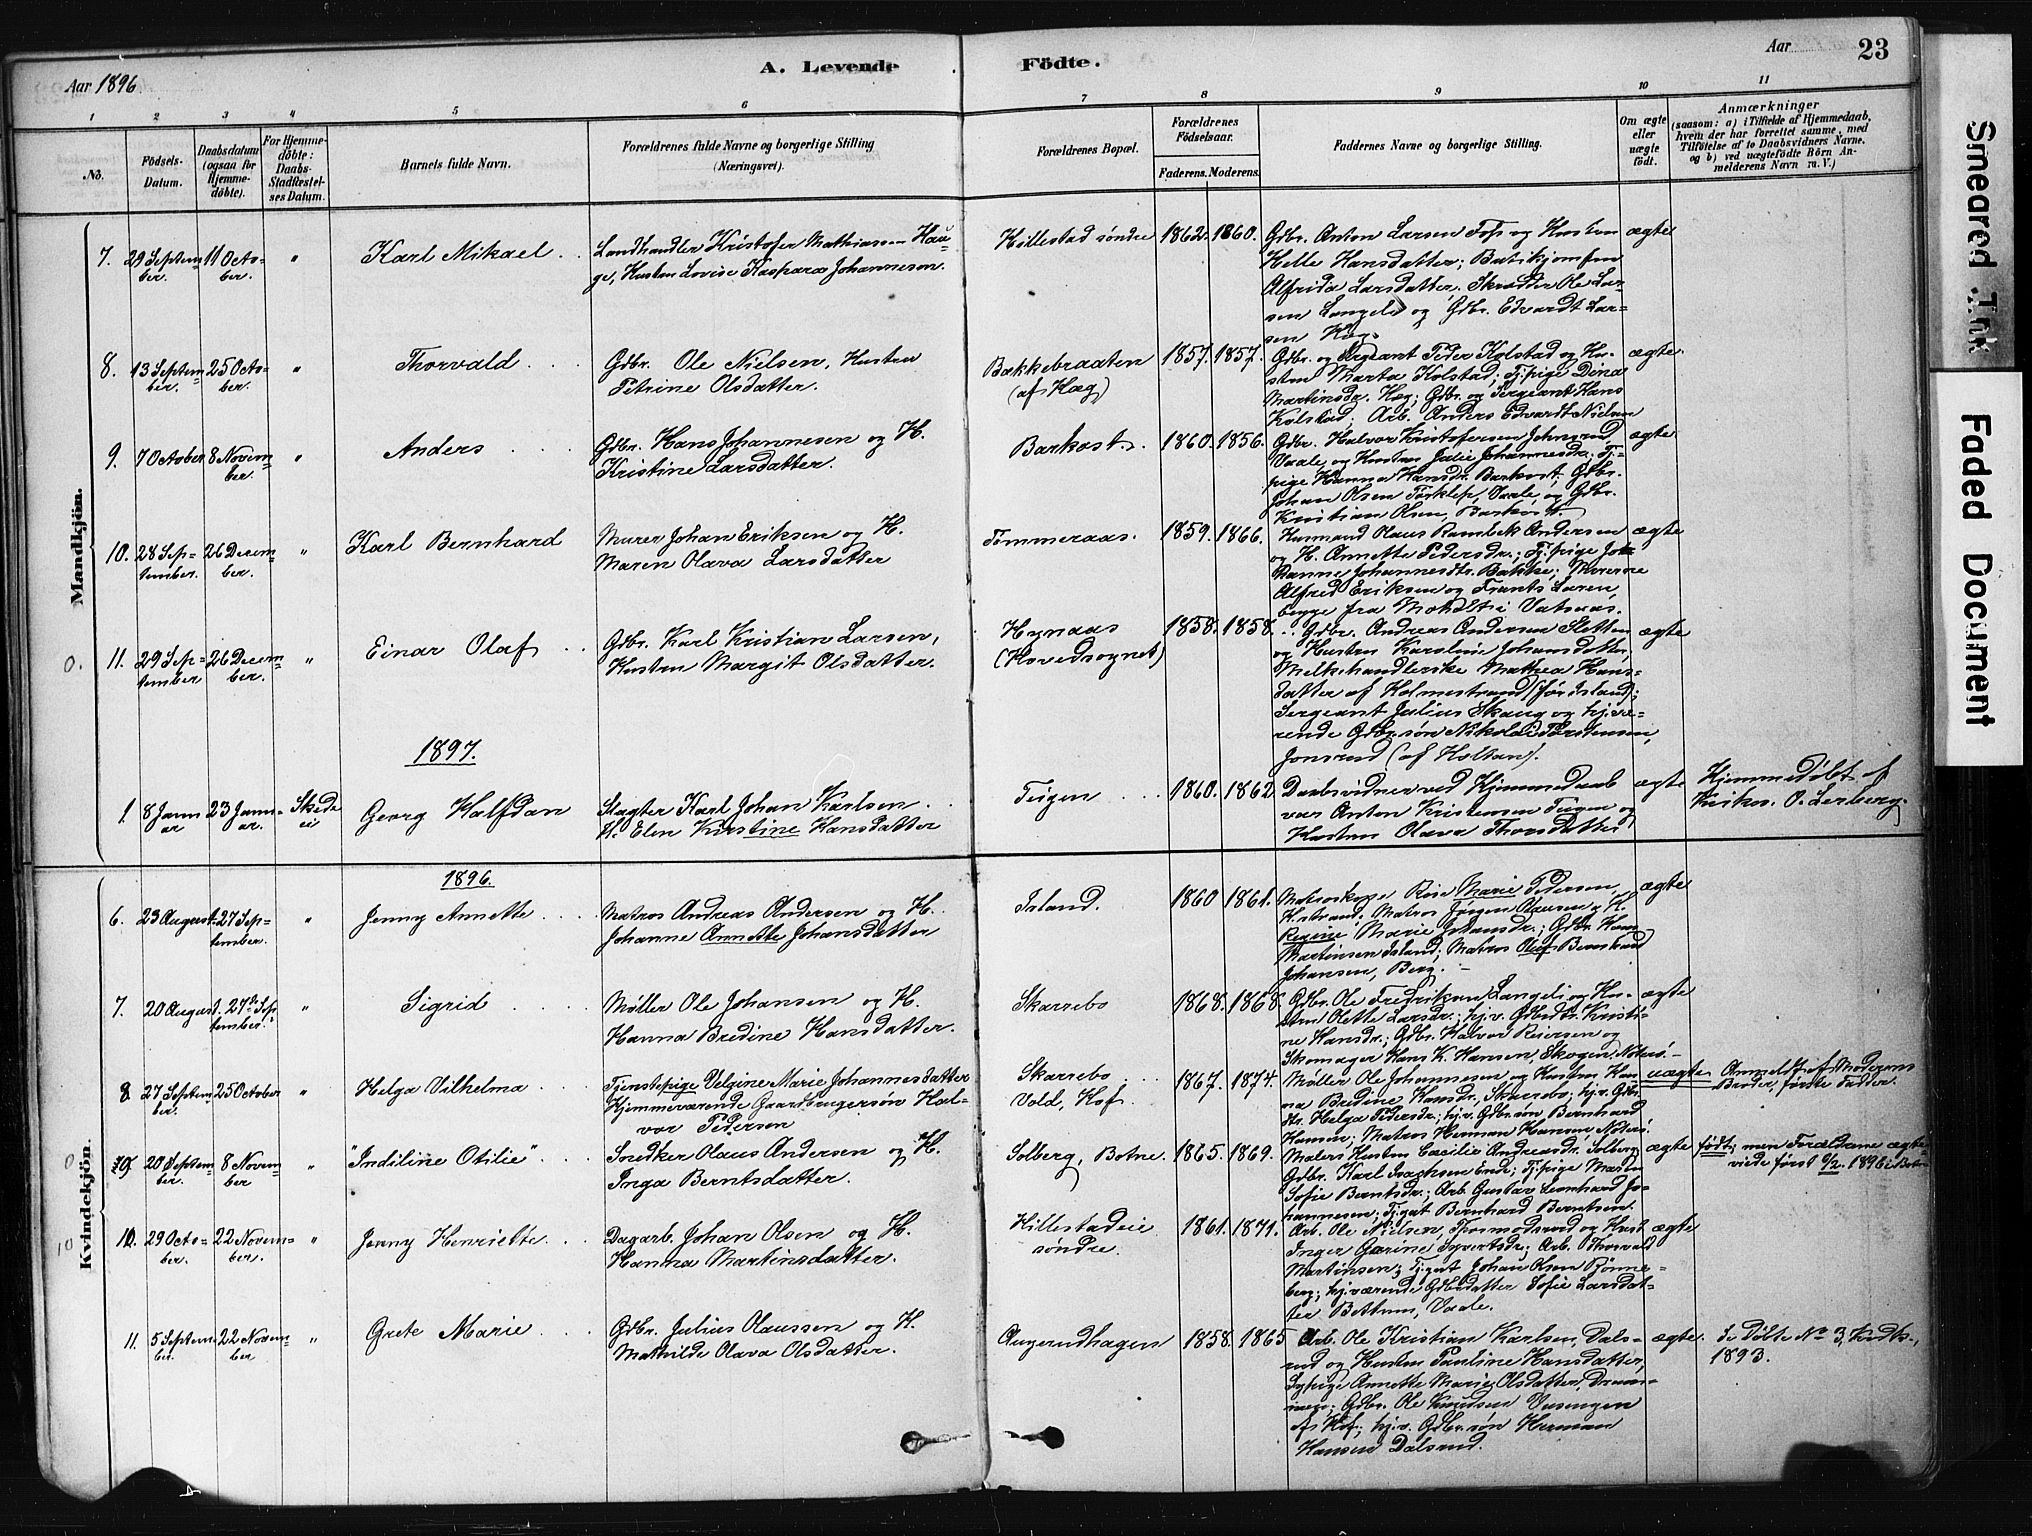 Aar 1896.
A. Levende Födte.
Aar
23
1 2 3 4 5 6 7 8 9 10 11
No.
Födsels-Datum.
Daabsdatum (ogsaa for Hjemmedöbte).
For Hjemmedöbte: Daabs-Stadfæstelses Datum.
Barnets fulde Navn.
Forældrenes fulde Navne og borgerlige Stilling (Næringsvei).
Forældrenes Bopæl.
Forældrenes Födselsaar.
Faderens. Moderens.
Faddernes Navne og borgerlige Stilling.
Om ægte eller uægte födt.
Anmærkninger
(saasom: a) i Tilfælde af Hjemmedaab,
hvem der har forrettet samme, med
Tilföielse af to Daabsvidners Navne,
og b) ved uægtefödte Börn An-
melderens Navn m. V.)
Mandkjön.
7. 29 Septem-ber. 11 Octo-ber. " Karl Mikael
Landhandler Kristofer Mathiassen Hau-
ge, Hustru Lovise Kaspara Johannesen.
Hillestad söndre 1862. 1860.
Gdbr. Anton Larsen Fos og Hustru
Helle Hansdatter; Butikjomfru
Alfrida Larsdatter. Skrædder Ole Lar-
sen Langeli og Gdbr. Edvardt Lar-
sen Hæg.
ægte
8. 13 Septem-ber. 25 Octo-ber. " Thorvald
Gdbr. Ole Nielsen, Hustru
Petrine Olsdatter.
Bakkebraaten
(af Hæg)
1857. 1857.
Gdbr. og Sergeant Peder Kolstad og Hu-
stru Marta Kolstad; Tj.pige Dina
Martinsdr. Hæg; Gdbr. og Sergeant Hans
Kolstad, Arb. Anders Edvardt Nielsen
ægte.
9. 7 October 8 Novem-ber. Anders
Gdbr. Hans Johannesen og H.
Kristine Larsdatter.
Barkost. 1860. 1856.
Gdbr. Halvor Kristofersen Johnsrud,
Vaale og Hustru Julie Johannesdr. Tj-
pige Hanna Hansdr. Barkost. Gdbr.
Johan Olsen Torklep, Vaale, og Gdbr.
Kristian Olsen, Barkost.
ægte.
10. 28 Sep-tember. 26 Decem-ber. " Karl Bernhard
Murer Johan Eriksen og H.
Maren Olava Larsdatter
Tömmeraas. 1859. 1866.
Husmand Olaus Rambek Andersen
og H. Annette Pedersdr.; Tj.pige Jo-
hanne Johannesdtr. Bakke; Murerne
Alfred Eriksen og Frants Laren
begge fra
ægte
0. 11. 29 Sep-tember 26 Decem-ber. " Einar Olaf
Gdbr. Karl Kristian Larsen,
Hustru Margit Olsdatter.
Hynaas
(Hovedsognet)
1858. 1858.
Gdbr. Andreas Andersen Sletten
og Hustru Karoline Johansdatter,
Melkehandlerske Mathea Hans-
datter af Holmestrand (för Island);
Sergeant Julius Skaug og hj.væ-
rende Gdbr.sön Nikolai Torstensen,
Jonsrud (af Holtan).
ægte
1897.
1. 8 Janu-ar 23 Janu-ar. Georg Halfdan
Slagter Karl Johan Karlsen
H. Elen Kirstine Hansdatter
Teigen 1860. 1862
Daabsvidner ved Hjemmedaab
var Anton Kristensen Teigen og
Hustru Olava Thorsdatter
ægte
Hjemmedöbt af
Kirkes. O. Lerberg.
Kvindekjön.
1896.
6. 23 August. 27 Sep-tember. " Jenny Annette
Matros Andreas Andersen og H.
Johanne Annette Johansdatter
Island. 1860 1861.
Matroskone Rise Marie Pedersen,
H.strand. Matros Jörgen Olausen og H.
Regine Marie Johansdr.; Gdbr. Hans
Martinsen Island; Matros Olaf Bernhard
Johansen, Berg.
ægte
7. 20 August. 27de Sep-tember. " Sigrid
Möller Ole Johansen og H.
Hanna Bredine Hansdatter.
Skarrebo 1868. 1868.
Gdbr. Ole Fredriksen Langeli og Hu-
stru Olette Larsdr.; hj.v. Gdbrdtr. Kristi-
ne Hansdr.; Gdbr. Halvor Reiersen og
Skomager Hans K. Hansen, Skogen, Noterö.
ægte
8. 27 Septem-ber. 25 October " Helga Vilhelma
Tjenstepige Velgine Marie Johannesdatter
Hjemmeværende Gaardbrugersön Hal-
vor Pedersen
Skarrebo
Vold, Hof.
1867. 1874.
Möller Ole Johannesen og Hustru Han-
na Bredine Hansdr., Skarrebo; hj.v. Gdbr.
dtr. Helga Pedersdr.; hj.v. Gdbr.sön Bernhard
Hansen; Matros Herman Hansen Noterö.
uægte
Anmeldt af Moderens
Broder, förste Fadder.
0 9. 20 Septem-ber. 8 Novem-ber " "Indiline Otilie"
Snedker Olaus Andersen og H.
Inga Berntsdatter.
Solberg, Botne. 1865. 1869.
Malers Hustru Cæcilie Andreasdr. Solberg
Gdbr. Karl Isachsen Enge; Tj.pige Maren
Sofie Berntsdr.; Arb. Gustav Leonhard Jo-
hannesen; Tj.gut Bernhard Berntsen.
ægte
födt, men Forældrene ægte-
viede först 6/2. 1896 i Botne
10 10. 29 Octo-ber. 22 Novem-ber. " Jenny Henriette.
Dagarb. Johan Olsen og H.
Hanna Martinsdatter.
Hillestadeie
söndre.
1861. 1871.
Arb. Ole Nielsen, Thormodsrud og Hust.
Inger Gurine Syvertsdr; Arb. Thorvald
Martinsen; Tj.gut Johan Olsen Rönne-
berg; hj.værende Gdbrdatter Sofie Larsdat-
ter Bettum, Vaale.
ægte
11. 5 Septem-ber. 22 Novem-ber " Grete Marie
Gdbr. Julius Olaussen og H.
Mathilde Olava Olsdatter.
Augerudhagen 1858. 1865
Arb. Ole Kristian Karlsen, Dals-
rud og Hustru Pauline Hansdatter,
Sypige Annette Marie Olsdatter, Dram-
men; Gdbr. Ole Knudsen
af Hof; hj.v. Gdbr.sön Herman
Hansen Dalsrud.
ægte.
Se Döbte No 3, Kvdk.,
1893.
Smeared Ink
Faded Document